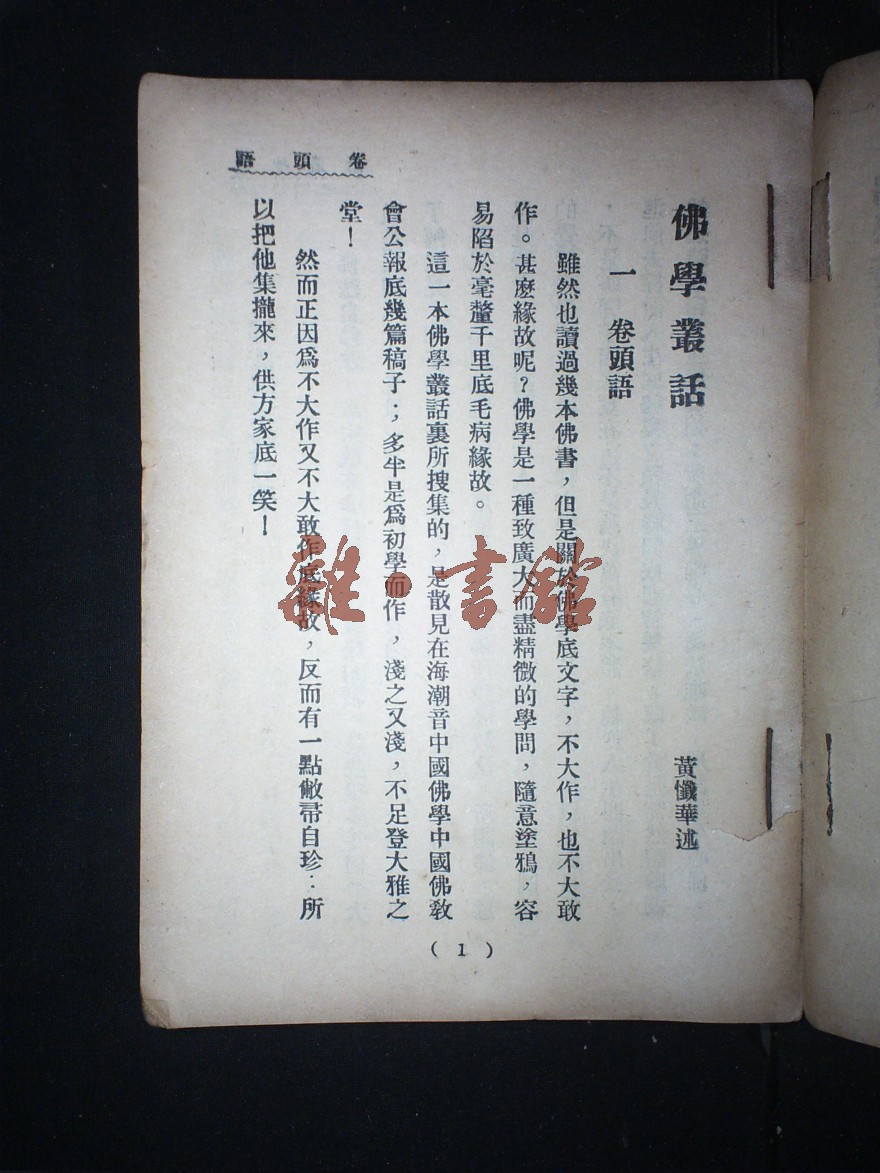 卷頭語
佛學叢話
黃懺華述
一　卷頭語
雖然也讀過幾本佛書，但是關於佛學底文字，不大作，也不大敢
作。甚麽緣故呢？佛學是一種致廣大而盡精微的學問，隨意塗鴉，容
易陷於毫釐千里底毛病緣故。
這一本佛學叢話裏所搜集的，是散見在海潮音中國佛學中國佛敎
會公報底幾篇稿子；多半是爲初學而作，淺之又淺，不足登大雅之
堂！
然而正因爲不大作又不大敢作底緣故，反而有一點敝帚自珍：所
以把他集攏來，供方家底一笑！
( 1 )
雜·書館